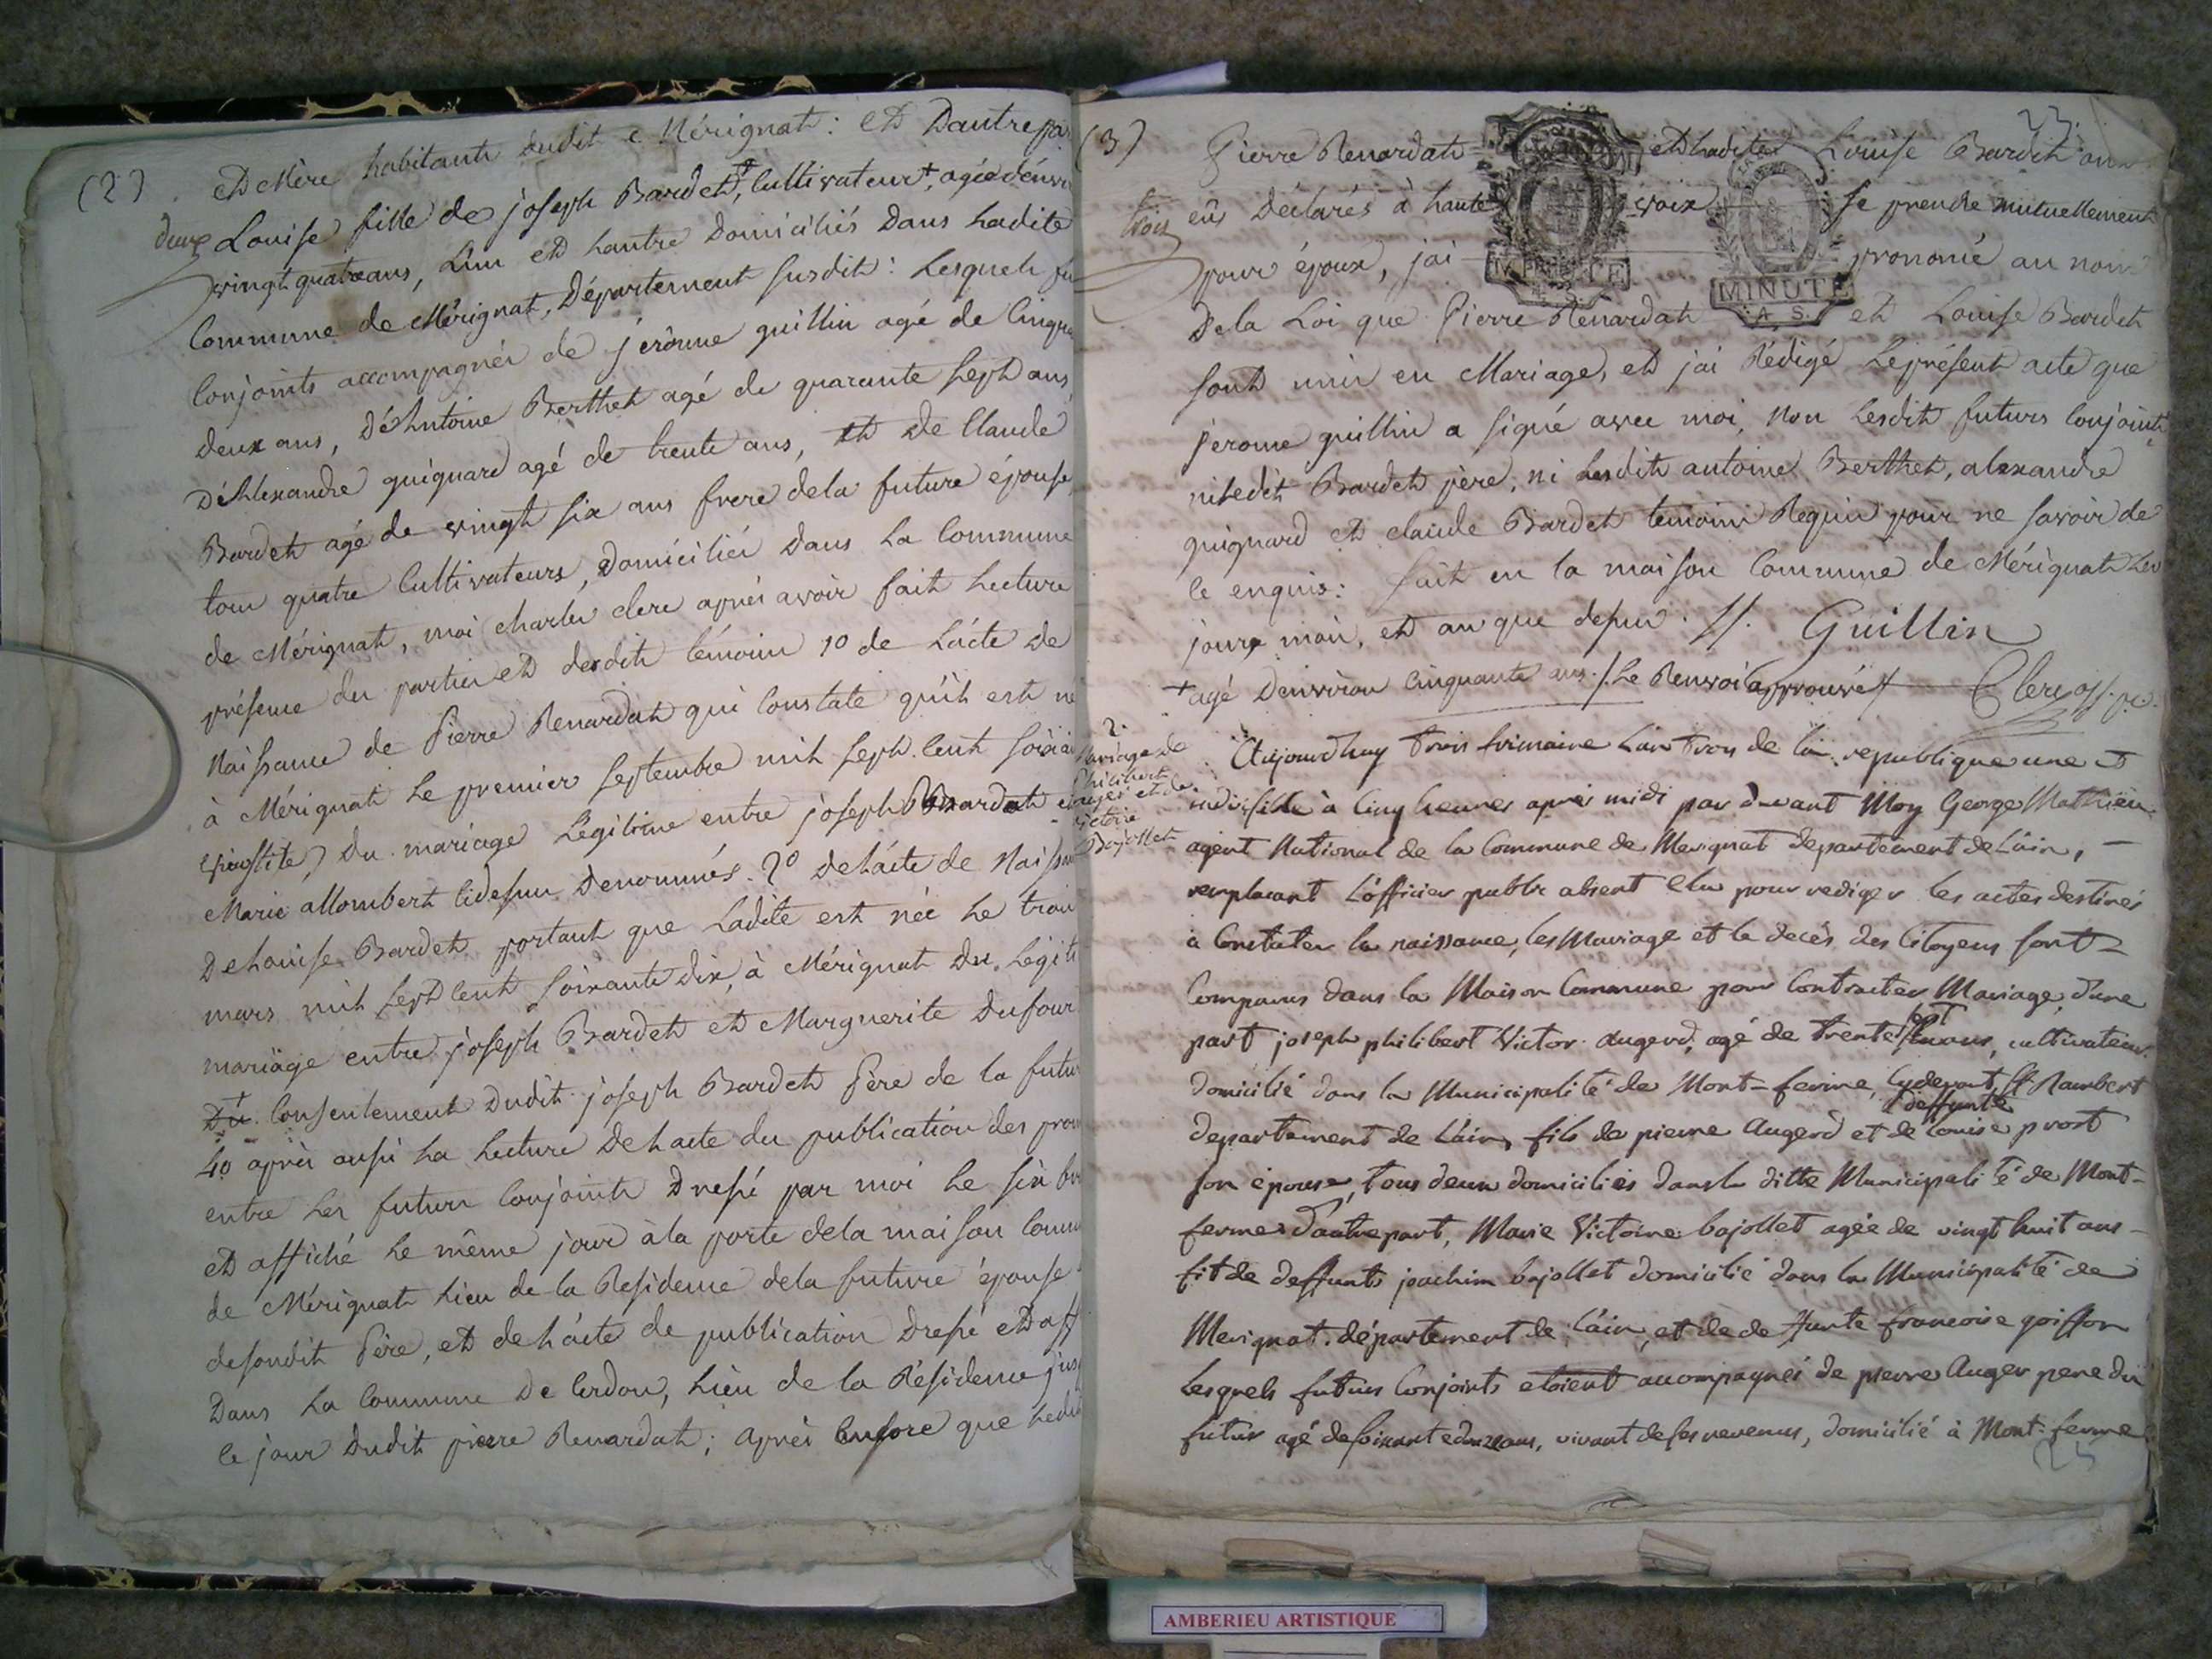 (2)
et Mère habitants dudit Mérignat : et Dautre par
deux
Louise fille de joseph Bardet, Cultivateur +, agée d'envi
vingt quatre ans, L'un et Lautre Domiciliés Dans Ladite
Commune de Mérignat, Département susdit : Lesquels fu
Conjoints accompagnés de jérôme guillin agé de Cinqua
Deux ans, D'Antoine Berthet agé de quarante sept ans
D'Alexandre guignard agé de trente ans, et de Claude
Bardet agé de vingt six ans frere dela future épouse,
tous quatre Cultivateurs, Domiciliés Dans La Commune
de Mérignat, moi Charles clerc après avoir fait Lecture
présence des parties et desdits témoins 1o de L'acte de
Naissance de Pierre Renardat qui Constate qu'il est né
à Mérignat Le premier septembre mil sept Cent soixan
Du mariage Légitime entre joseph Renardat et
Marie allombert Cidessus Denommés. 2o De L'acte de Naissa
De Louise Bardet portant que Ladite est née Le trois
mars mil sept Cent soixante Dix, à Mérignat Du Légiti
mariage entre joseph Bardet et Marguerite Dufour
Du Consentement Dudit joseph Bardet Père de la futu
4o après aussi La Lecture De Lacte du publication des prom
entre Les futurs Conjoints Dressé par moi Le six br
et affiché Le même jour à la porte dela maison Comm
de Mérignat Lieu de la Residence dela future épouse
desondit Père, et de L'acte de publication Dressé et aff
Dans La Commune De Cerdon, Lieu de la Résidence jusq
ce jour Dudit pierre Renardat ; après Encore que Ledit
(3)
23.
Pierre Renardat et Ladite Louise Bardet ont
trois
eûs Déclarés à haute voix se prendre mutuellement
pour époux, jai prononcé au nom
MINUTE
MINUTE
A. S.
Dela Loi que Pierre Rénardat et Louise Bardet
sont unis en Mariage, et jai Rédigé Le présent acte que
jerome guillin a signé avec moi, Non Lesdits futurs Conjoints
ni Ledit Bardet père, ni Lesdits antoine Berthet, alexandre
guignard et claude Bardet temoins Requis pour ne savoir de
ce enquis : fait en la maison Commune de Mérignat Les
jours, mois, et an que dessus. //. Guillin
+ agé Denviron Cinquante ans ./. Le Renvoi approuvé // Clerc off. pu.
2.
Mariage de
Philibert
auger et de
victoire
Bajollet
Aujourdhuy trois frimaire Lan trois de la republique une et
indivisible à Cinq heures après midi par devant Moy George Mathieu
agent National de la Commune de Merignat departement de L'ain, –
remplacant L'officier public absent Elu pour rediger les actes destinés
à Constater la naissance, les Mariage et le decès des Citoyens sont –
Comparus dans la Maison Commune pour Contracter Mariage, d'une
part joseph philibert Victor augerd, agé de trente sept ans, cultivateur
domicilié dans la Municipalité de Mont-ferme, Cydevant St Rambert
departement de L'ain, fils de pierre Augerd et de deffunte Louise prost
son épouse, tous deux domiciliés dans la ditte Municipalité de Mont-
ferme, D'autre part, Marie Victoire bajollet agée de vingt huit ans –
fit de deffunts joachim bajollet domicilié dans la Municipalité de
Merignat, département de L'ain, et de deffunte francoise goiffon
Lesquels futurs Conjoints etoient accompagnés de pierre Auger pere du
futur agé de soixante douze ans, vivant de ses revenus, domicilié à Mont-ferme
AMBERIEU ARTISTIQUE